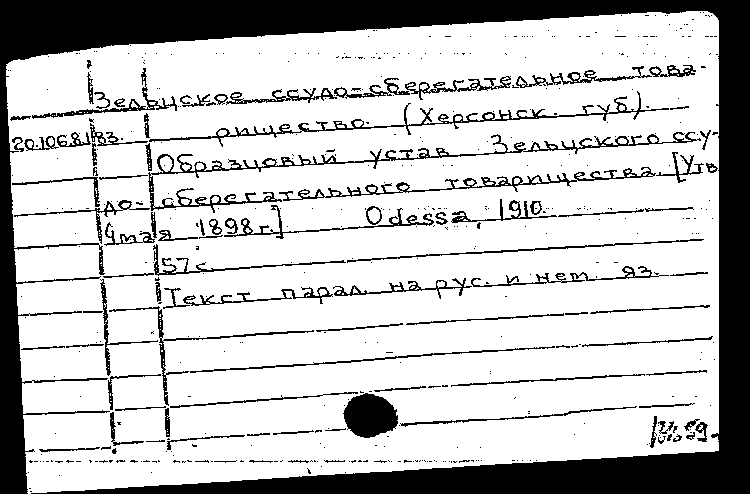 Зельцское ссудо-сберегательное това-
20.106.8.183. рищество. (Херсонск. губ.).
Образцовый устав Зельцского ссу-
до-сберегательного товарищества. [Утв.
4 мая 1898 г.] Odessa, 1910.
57 с.
Текст парал. на рус. и нем. яз.